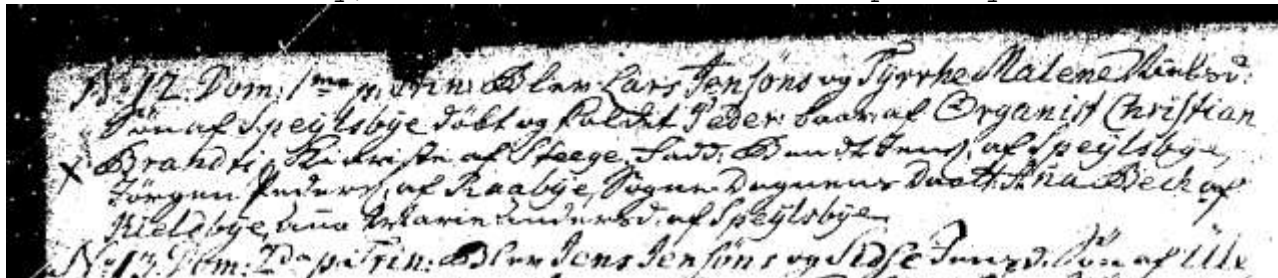 No 12. Dom: 1ma p. Trin: Blev Lars Jensöns og Tyrrhe Malene
Sön af Speÿlsbÿe döbt og kaldet Peder: baar: af Organist Christian
Brandt: af Steege. Fadd: Bendt Jens: af Speÿlsbÿe,
Jörgen Peders: af Raabÿe, Sogne Degnens Datt: Aña Beck af
Kieldbÿe, Ana Marie Andersd. af Speÿlsbÿe.
No 13. Dom: 2da p. Trin: Blev Jens Jensöns og Sidse Jensd: Sön af